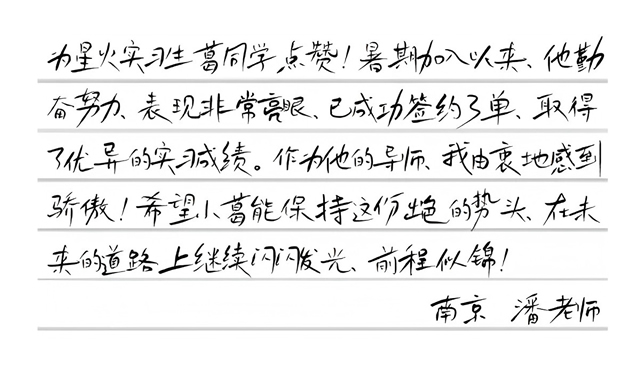 为星火实习生葛同学点赞！暑期加入以来、他勤
奋努力、表现非常亮眼、已成功签约3单、取得
了优异的实习成绩。作为他的导师、我由衷地感到
骄傲！希望小葛能保持这份出色的势头、在未
来的道路上继续闪闪发光、前程似锦！
南京 潘老师